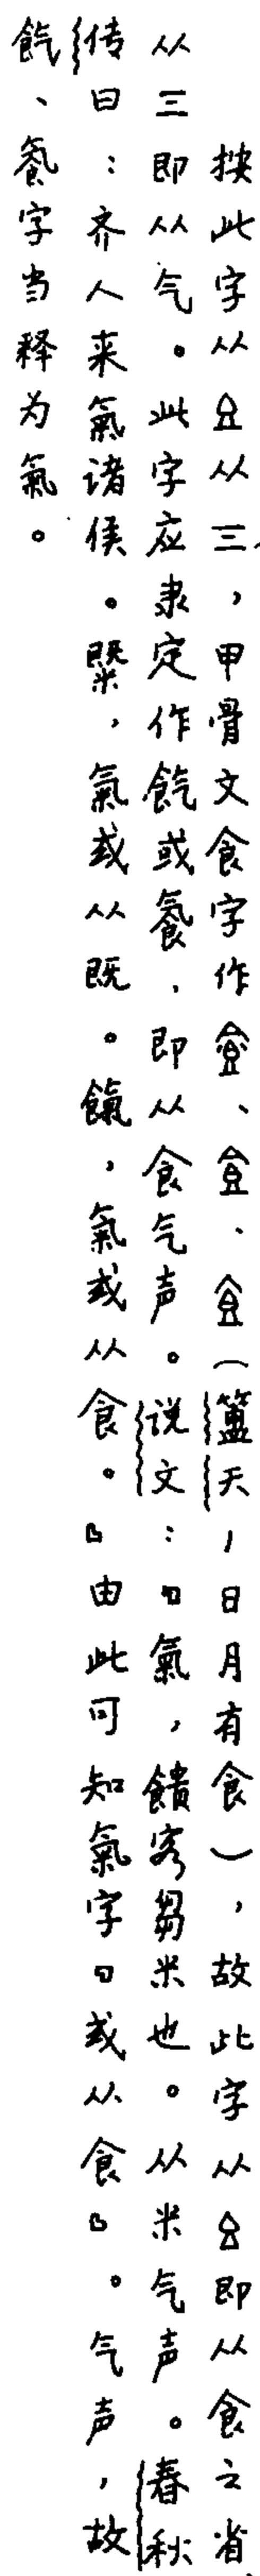 按此字从𠊊从三，甲骨文食字作、、（簠天，日月有食），故此字从即从食之省
从三即从气。此字应隶定作飥或䬣，即从食气声。说文：『氣，饋客芻米也。从米气声。春秋
传曰：齐人来氣诸侯。槩，氣或从既。餼，氣或从食。』由此可知氣字『或从食』。气声，故
字当释为氣。